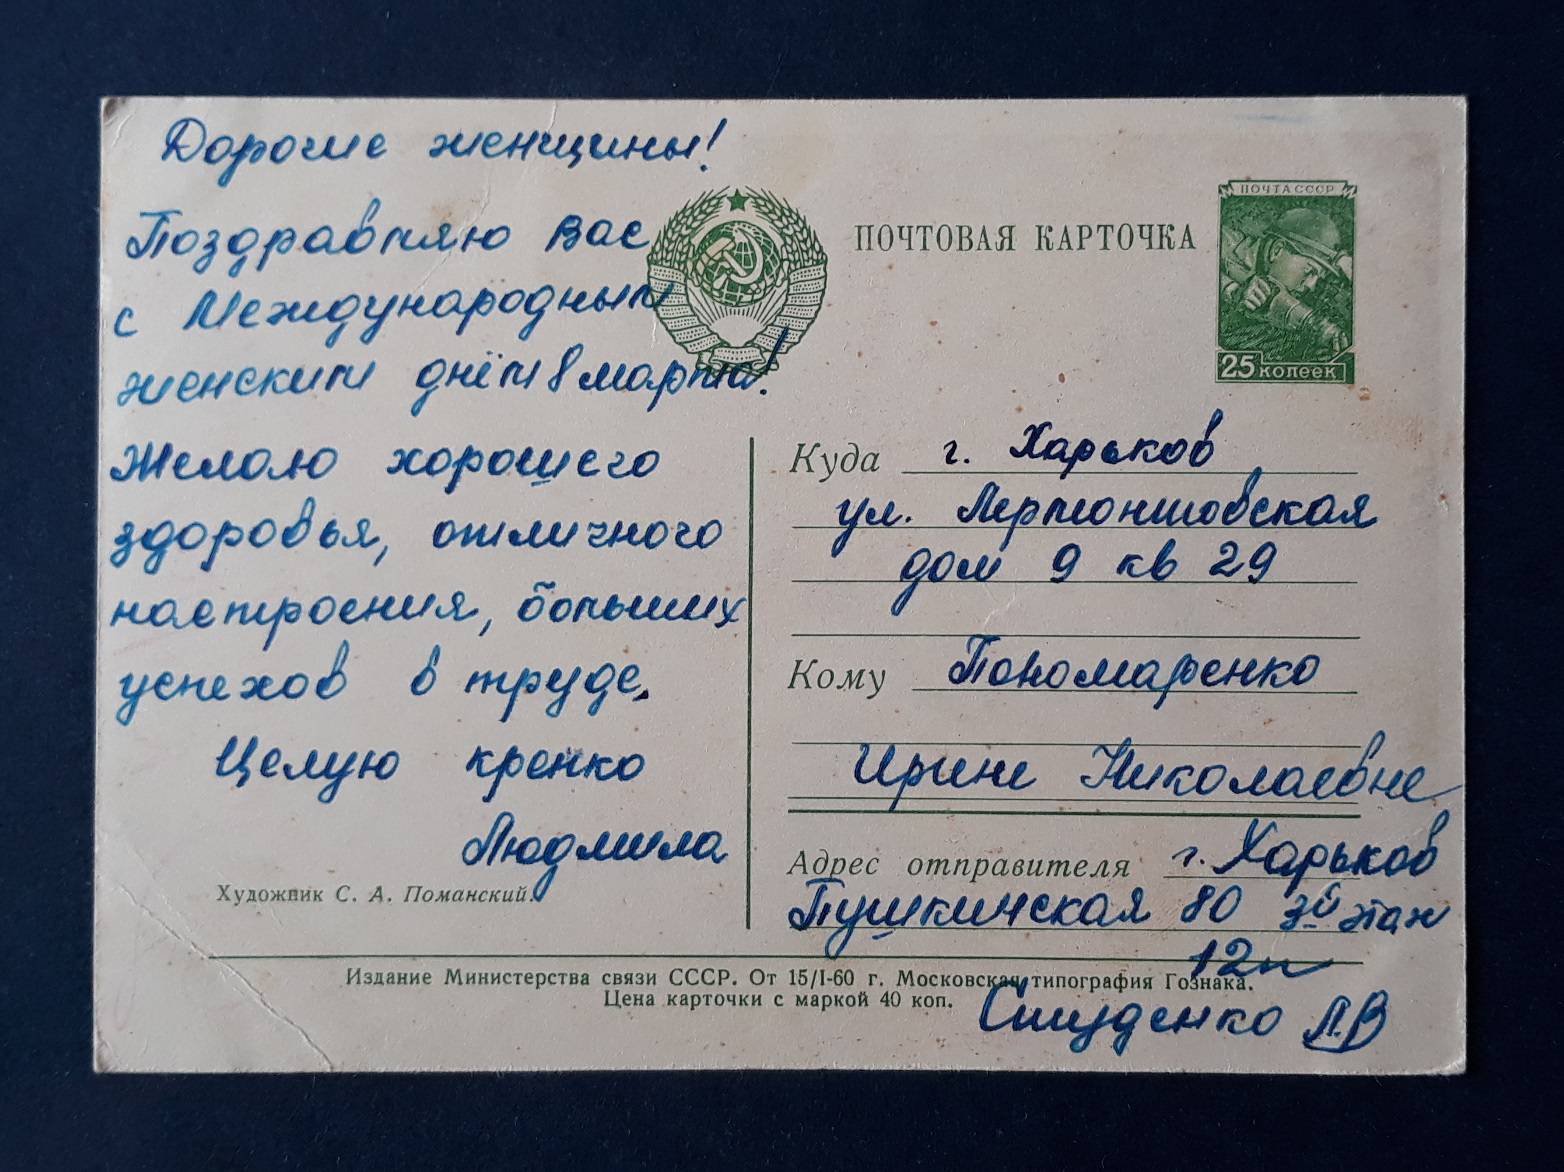 Дорогие женщины!
Поздравляю Вас
с Международным
женским днём 8 марта!
Желаю хорошего
здоровья, отличного
настроения, больших
успехов в труде.
Целую крепко
Людмила
Художник С. А. Поманский.
ПОЧТОВАЯ КАРТОЧКА
ПОЧТА СССР
25 копеек
Куда г. Харьков
ул. Лермонтовская
дом 9 кв 29
Кому Пономаренко
Ирине Николаевне
Адрес отправителя г. Харьков
Пушкинская 80 3й этаж
12п
Студенко Л.В
Издание Министерства связи СССР. От 15/I-60 г. Московская типография Гознака.
Цена карточки с маркой 40 коп.